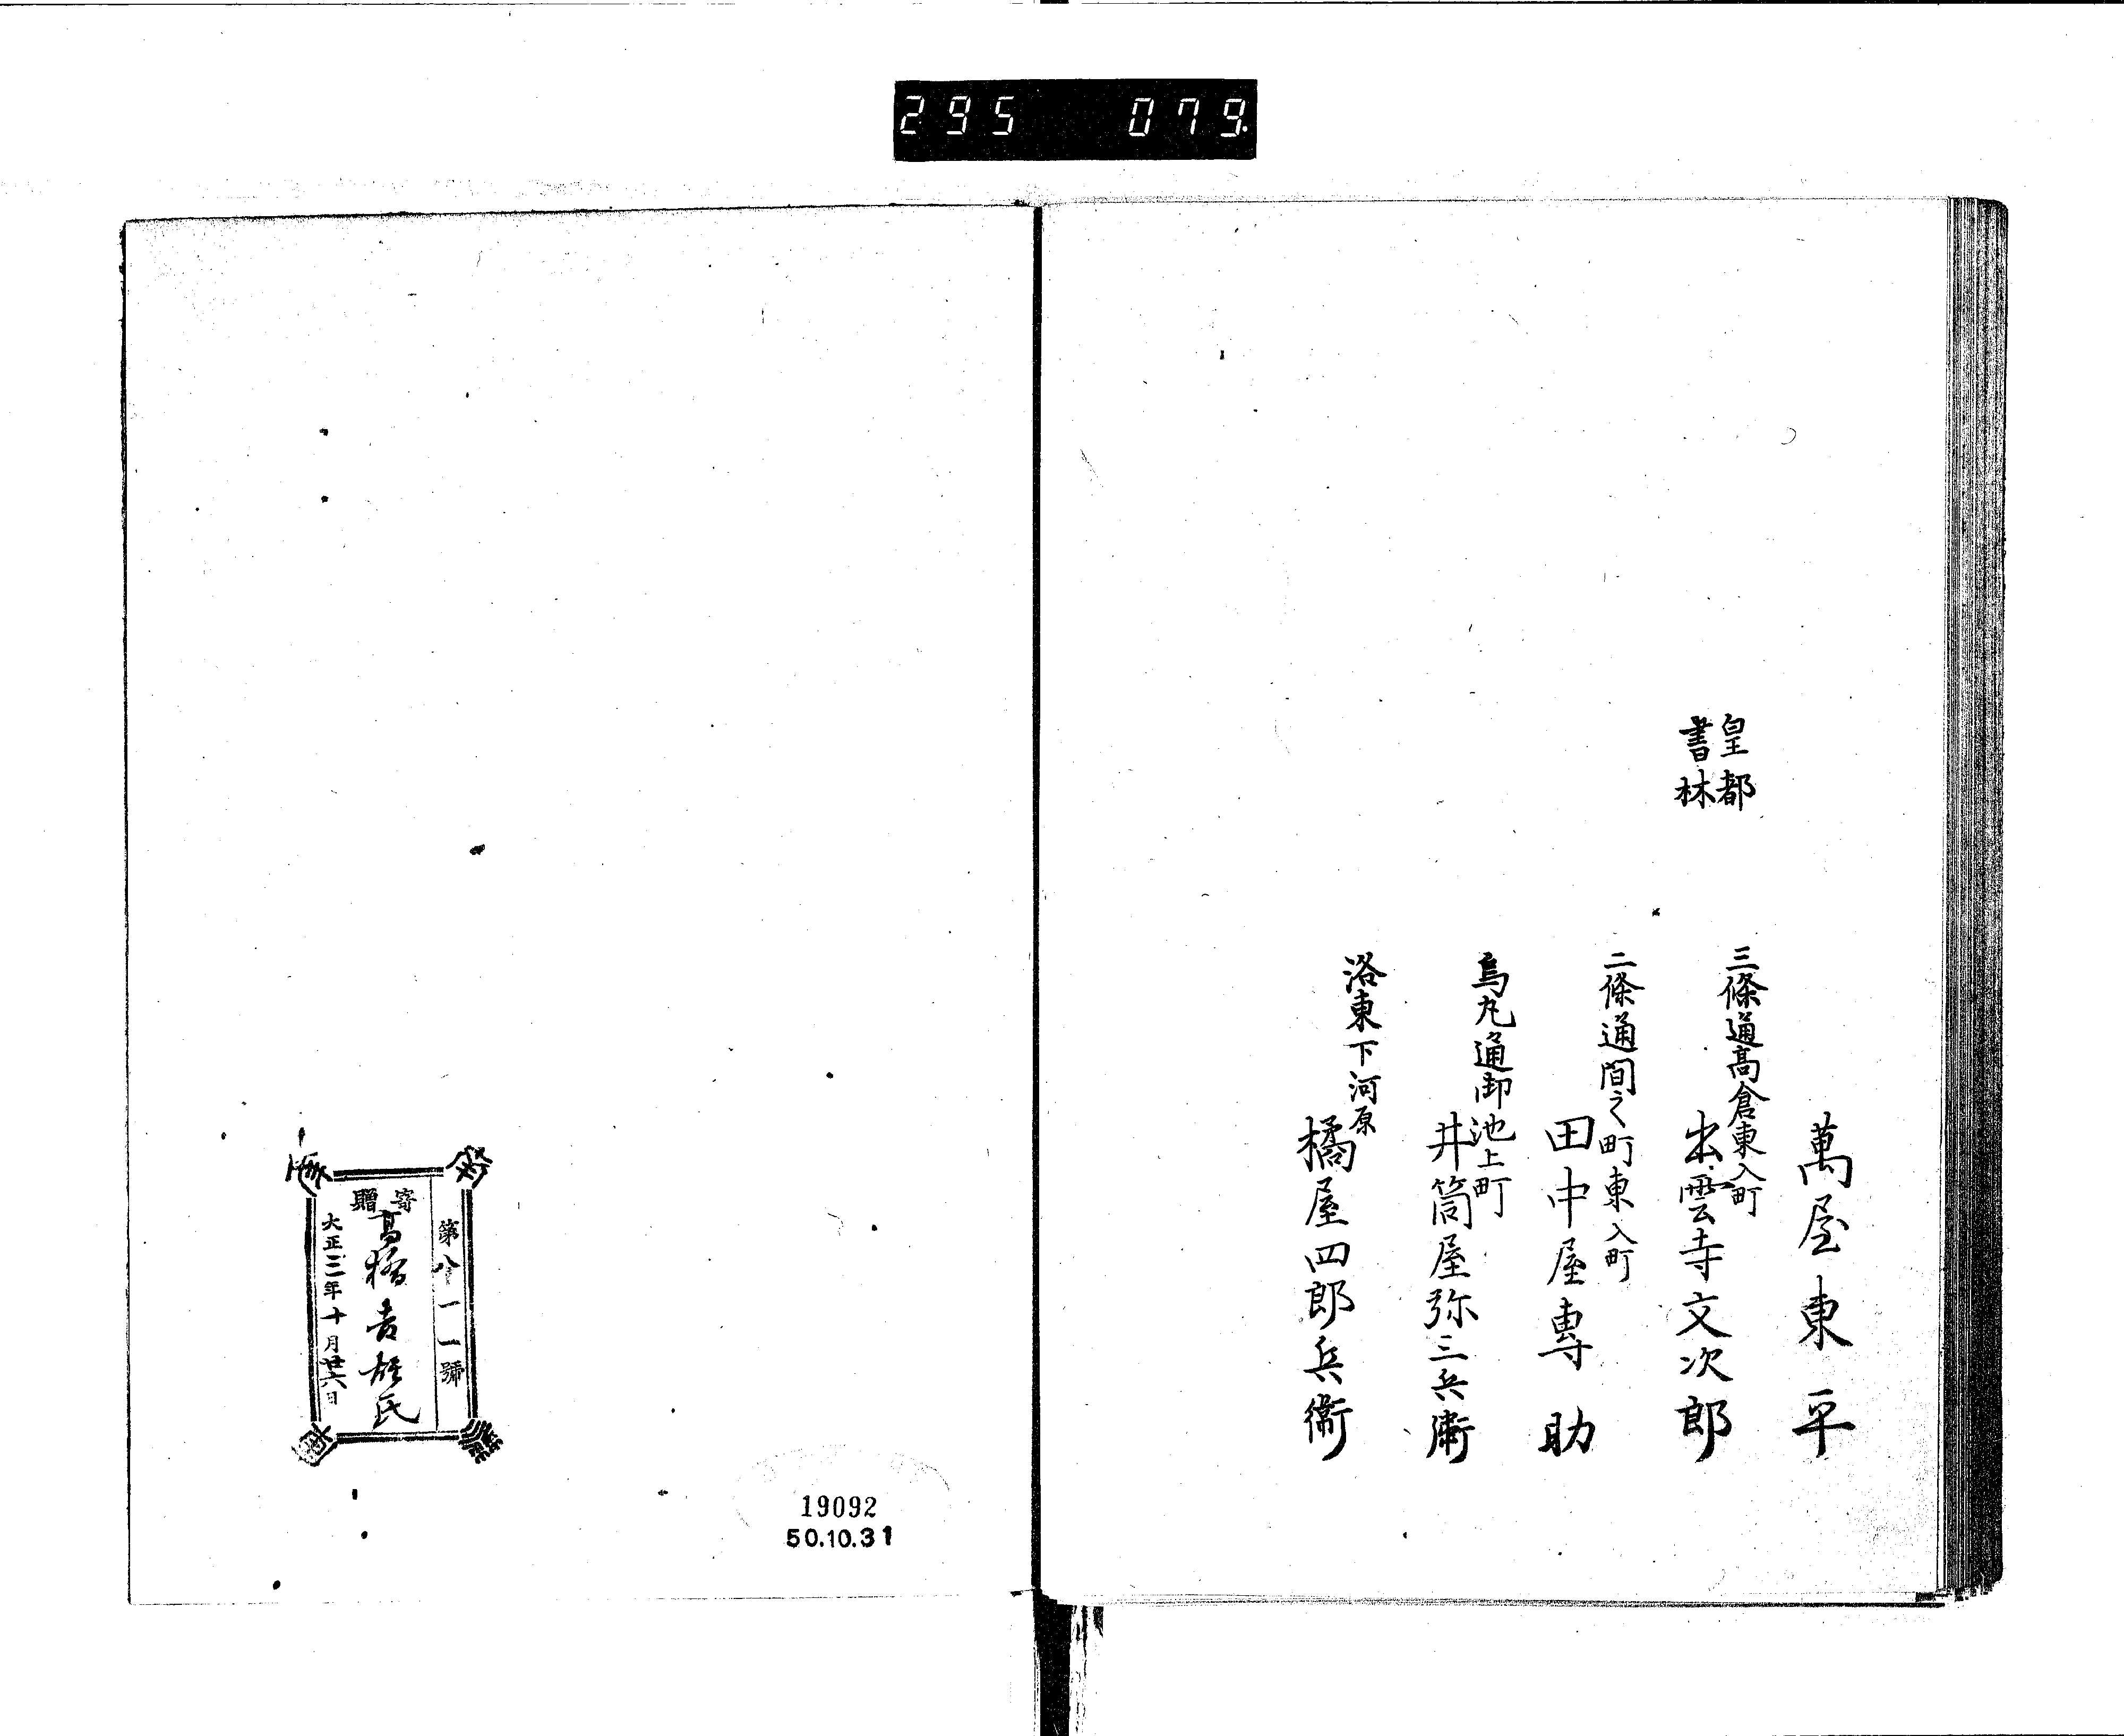 295 079.
萬屋東平
皇都
書林
三條通高倉東入町
出雲寺文次郎
二條通間之町東入町
田中屋專助
烏丸通御池上町
井筒屋弥三兵衛
洛東下河原
橘屋四郎兵衛
第八一一號
寄贈
大正三年十月廿六日
19092
50.10.31